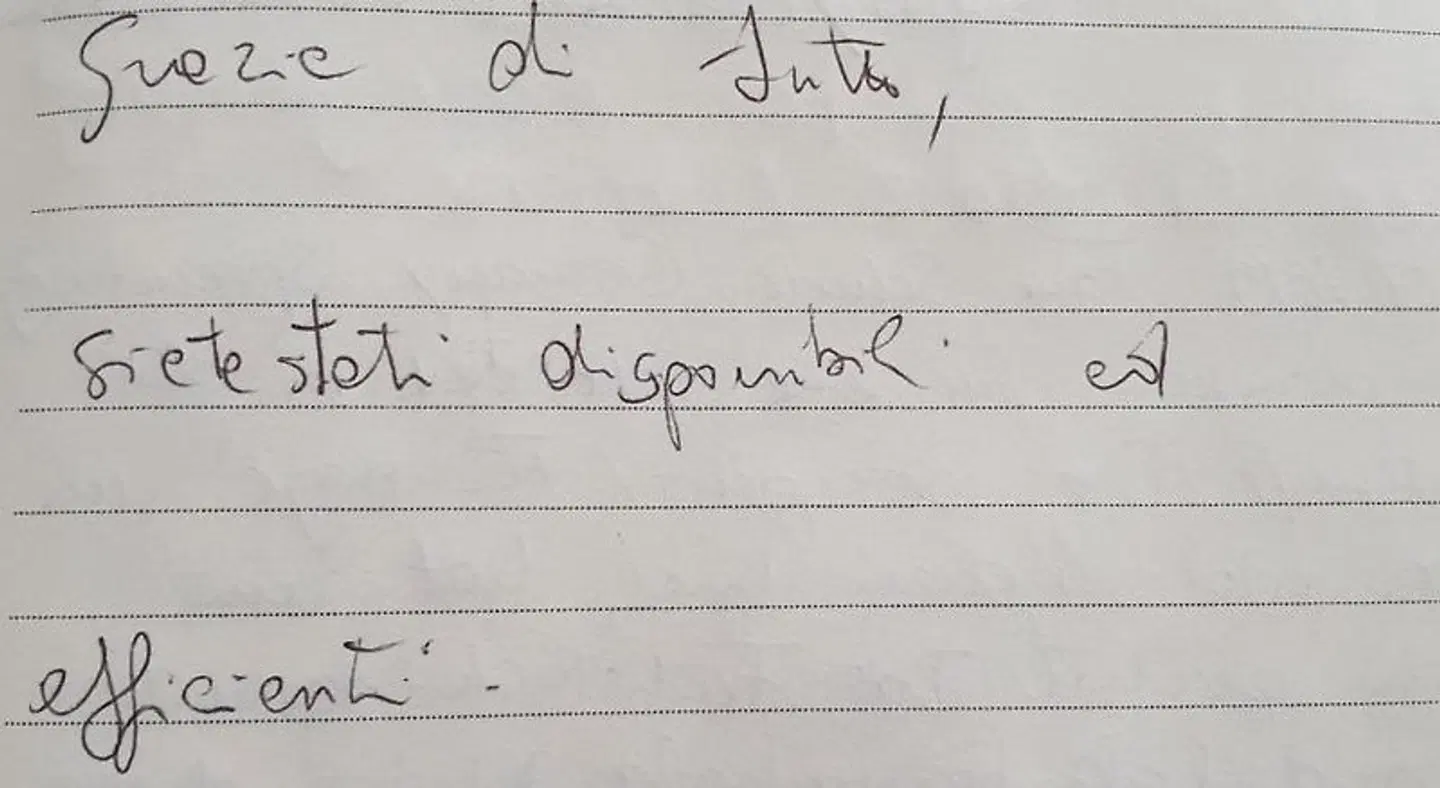 Grazie di tutto,
siete stati disponibili ed
efficienti.